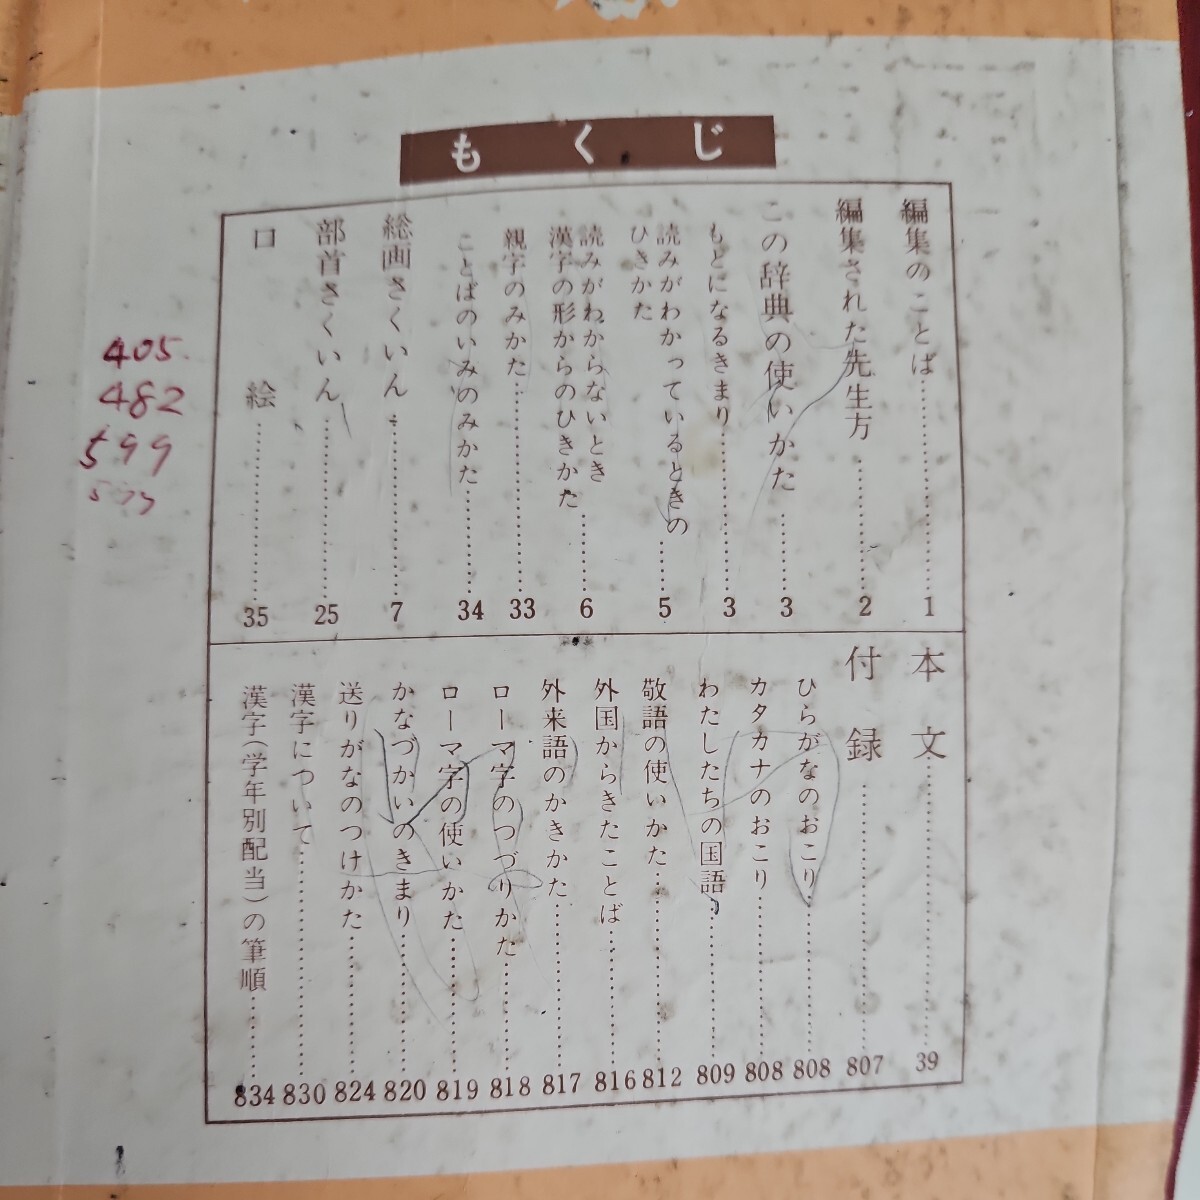 もくじ
編集のことば……1
編集された先生方……2
この辞典の使いかた……3
もとになるきまり……3
読みがわかっているときの
ひきかた……5
読みがわからないとき
漢字の形からのひきかた……6
親字のみかた……33
ことばのいみのみかた……34
総画さくいん……7
部首さくいん……25
口絵……35
本文……39
付録……807
ひらがなのおこり……808
カタカナのおこり……808
わたしたちの国語……809
敬語の使いかた……812
外国からきたことば……816
外来語のかきかた……817
ローマ字のつづりかた……818
ローマ字の使いかた……819
かなづかいのきまり……820
送りがなのつけかた……824
漢字について……830
漢字(学年別配当)の筆順……834
405
482
599